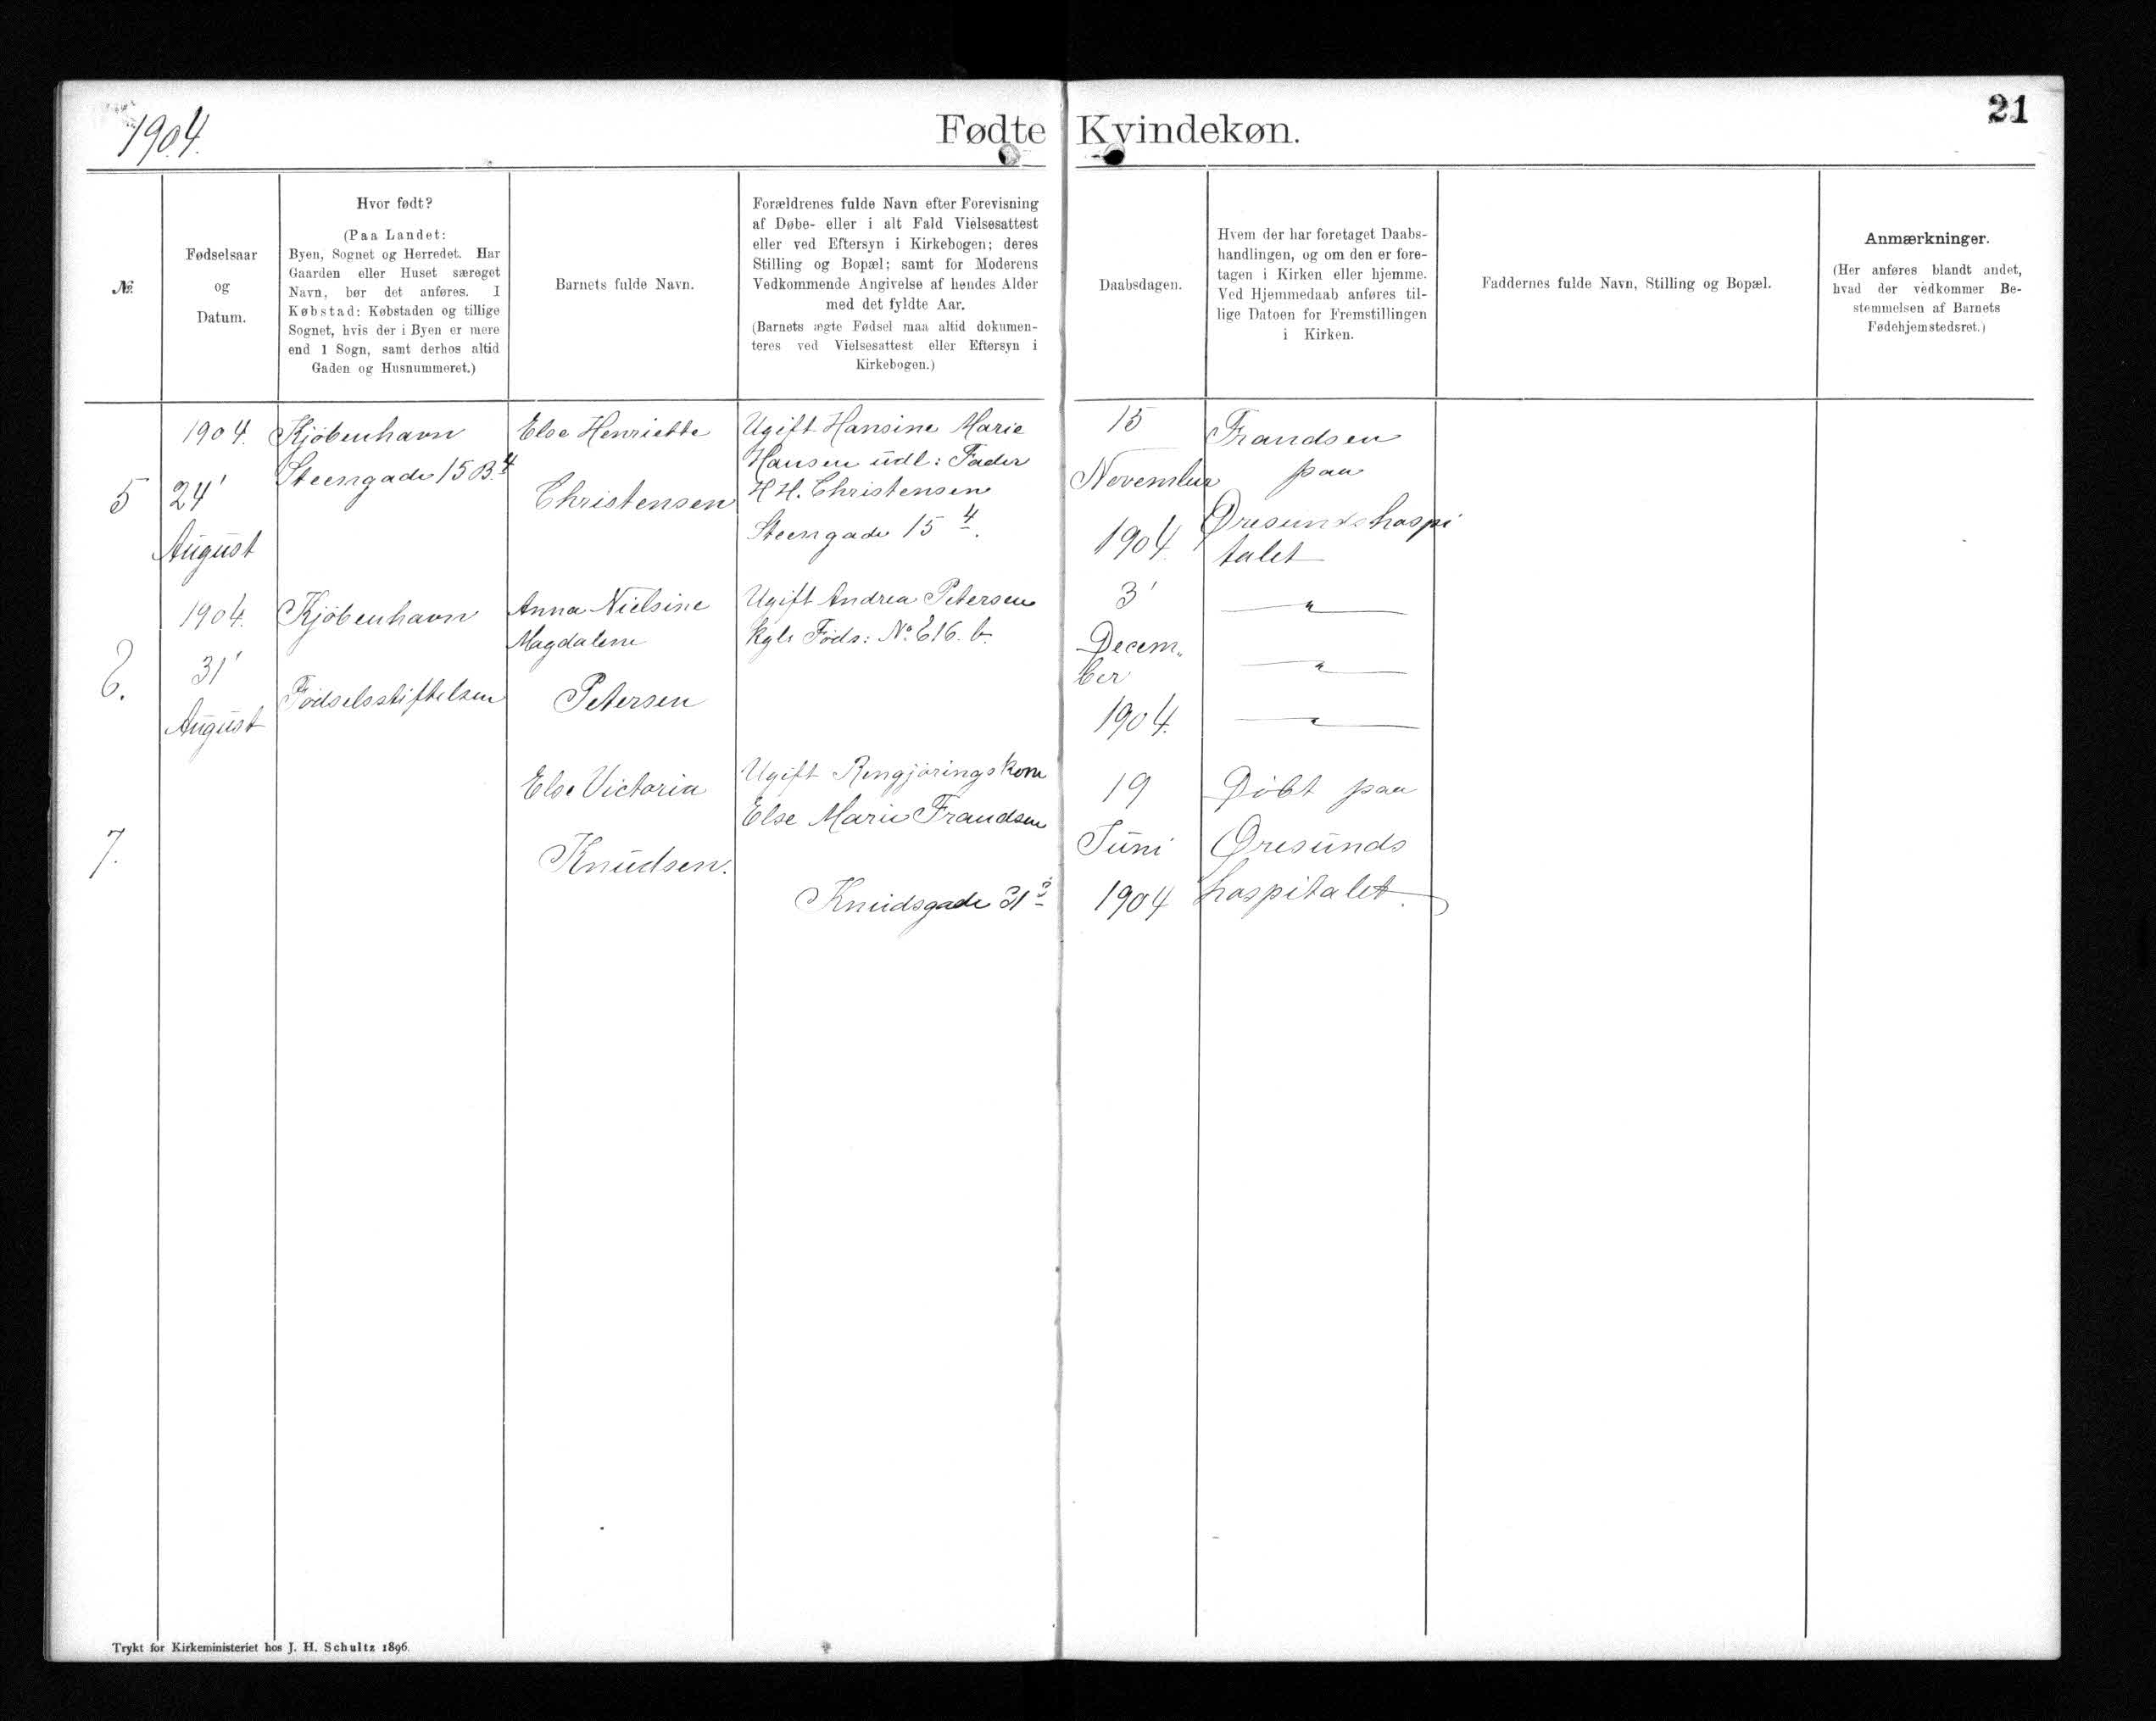 1904.
Fødte Kvindekøn.
21
№
Fødselsaar
og
Datum.
Hvor født?
(Paa Landet:
Byen, Sognet og Herredet. Har
Gaarden eller Huset særeget
Navn, bør det anføres. I
Købstad: Købstaden og tillige
Sognet, hvis der i Byen er mere
end 1 Sogn, samt derhos altid
Gaden og Husnummeret.)
Barnets fulde Navn.
Forældrenes fulde Navn efter Forevisning
af Døbe- eller i alt Fald Vielsesattest
eller ved Eftersyn i Kirkebogen; deres
Stilling og Bopæl; samt for Moderens
Vedkommende Angivelse af hendes Alder
med det fyldte Aar.
(Barnets ægte Fødsel maa altid dokumen-
teres ved Vielsesattest eller Eftersyn i
Kirkebogen.)
Daabsdagen.
Hvem der har foretaget Daabs-
handlingen, og om den er fore-
tagen i Kirken eller hjemme.
Ved Hjemmedaab anføres til-
lige Datoen for Fremstillingen
i Kirken.
Faddernes fulde Navn, Stilling og Bopæl.
Anmærkninger.
(Her anføres blandt andet,
hvad der vedkommer Be-
stemmelsen af Barnets
Fødehjemstedsret.)
5
1904.
24'
August
Kjöbenhavn
Steengade 15 B. 4
Else Henriette
Christensen
Ugift Hansine Marie
Hansen udl: Fader
H H. Christensen
Steengade 15 4.
15
November
1904.
Frandsen
paa
Øresundshospi
talet
6.
1904.
31'
August
Kjöbenhavn
Födselsstiftelsen
Anna Nielsine
Magdalene
Petersen
Ugift Andrea Petersen
kgle Føds: No. 616. b.
3'
Decem„
ber
1904.
"
"
"
7.
Else Victoria
Knudsen.
Ugift Rengjöringskone
Else Marie Frandsen
Knudsgade 31 3
19
Juni
1904
Døbt paa
Øresunds
hospitalet.
Trykt for Kirkeministeriet hos J. H. Schultz 1896.